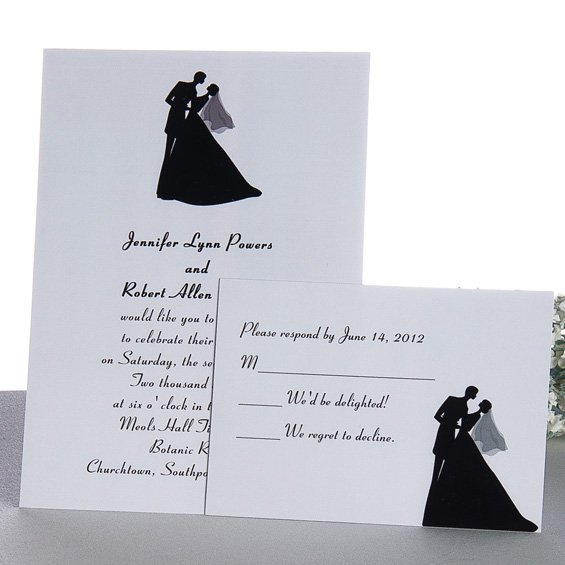 Jennifer Lynn Powers
and
Robert Allen
would like you to
to celebrate their
on Saturday, the
Two thousand
at six o' clock in
Meols Hall
Botanic
Churchtown,
Please respond by June 14, 2012
M
We'd be delighted!
We regret to decline.